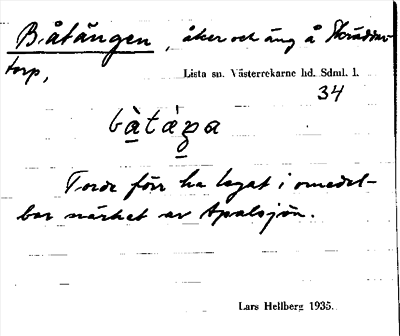 Båtängen, åker och äng å Skräddar-
torp,
Lista sn. Västerrekarne hd. Sdml. l.
34
Torde förr ha legat i omedel-
bar närhet av Apalsjön.
Lars Hellberg 1935.